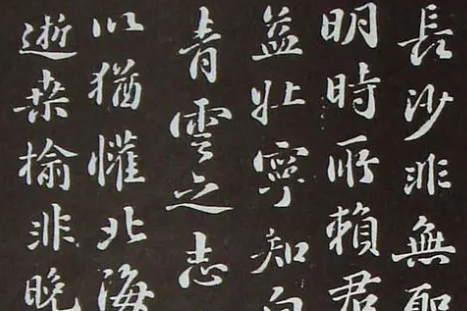 長沙非無聖
明時所賴君
益壯寧知白
青雲之志
以猶懽北海
逝桑榆非晚